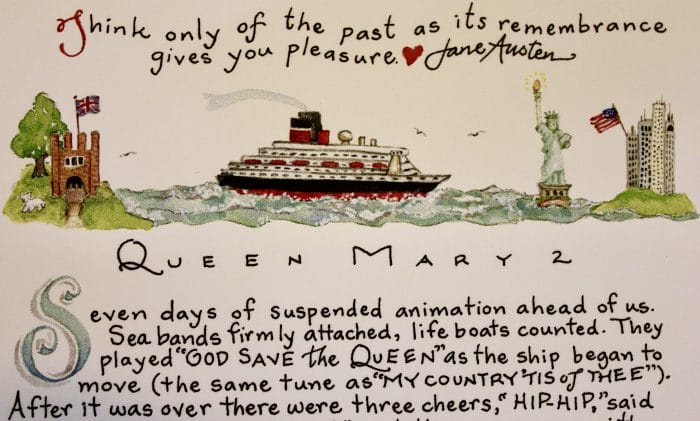 Think only of the past as its remembrance
gives you pleasure. ♥ Jane Austen
QUEEN MARY 2
Seven days of suspended animation ahead of us.
Sea bands firmly attached, life boats counted. They
played "GOD SAVE the QUEEN" as the ship began to
move (the same tune as "MY COUNTRY 'TIS of THEE").
After it was over there were three cheers, "HIP-HIP," said